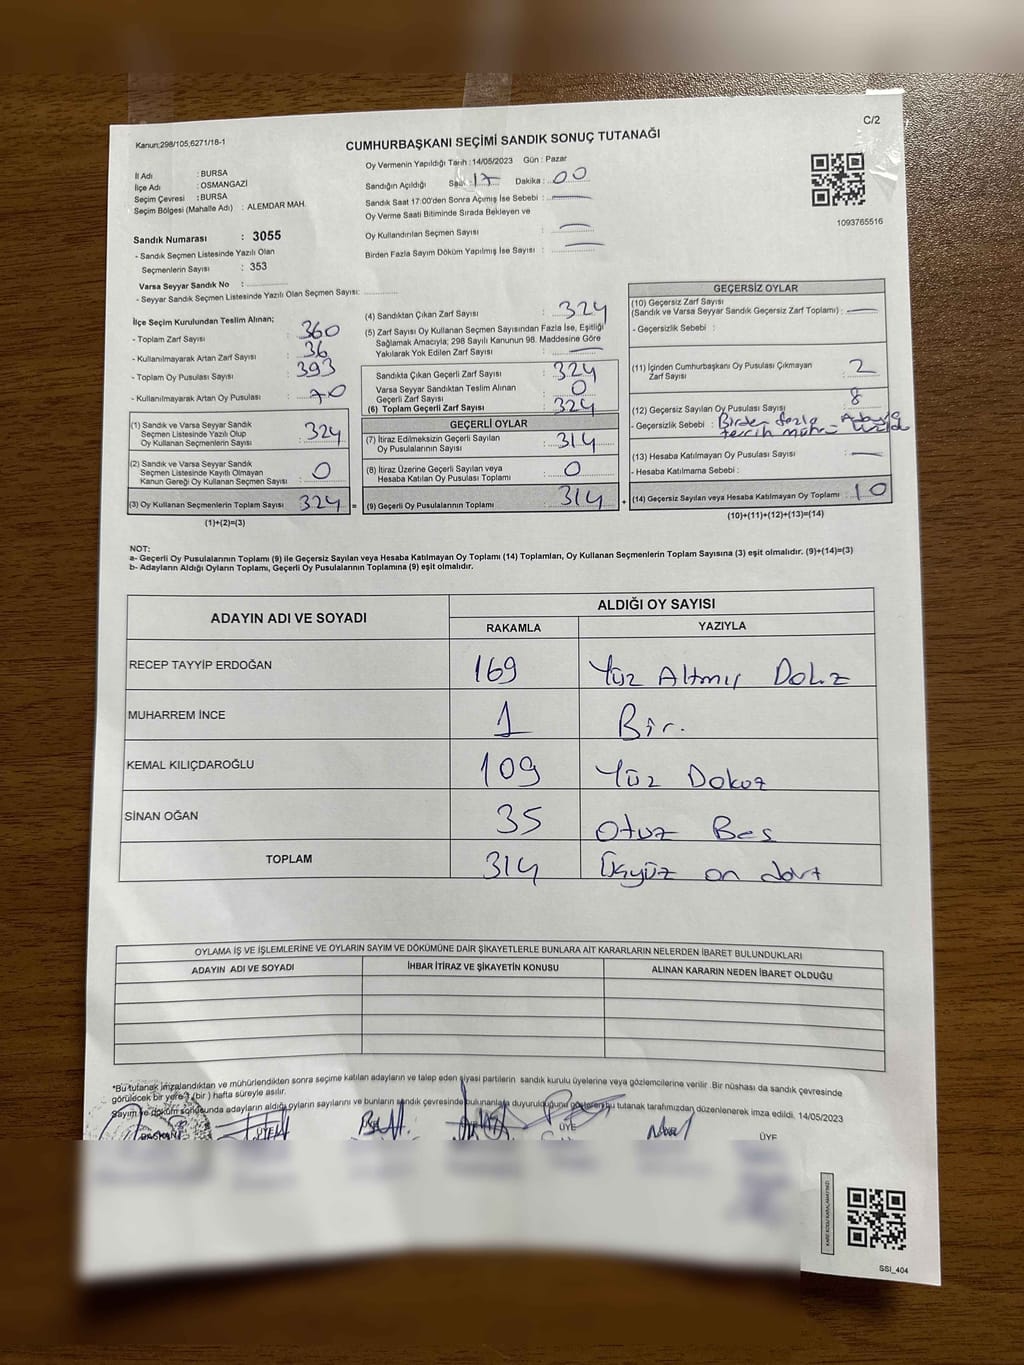 C/2
Kanun:298/105,6271/18-1
CUMHURBAŞKANI SEÇİMİ SANDIK SONUÇ TUTANAĞI
İl Adı : BURSA
İlçe Adı : OSMANGAZİ
Seçim Çevresi : BURSA
Seçim Bölgesi (Mahalle Adı) : ALEMDAR MAH.
Oy Vermenin Yapıldığı Tarih : 14/05/2023 Gün : Pazar
Sandığın Açıldığı Saat : 17 Dakika : 00
Sandık Saat 17:00'den Sonra Açımış İse Sebebi :
Oy Verme Saati Bitiminde Sırada Bekleyen ve
Oy Kullandırılan Seçmen Sayısı :
Birden Fazla Sayım Döküm Yapılmış İse Sayısı :
1093765516
Sandık Numarası : 3055
- Sandık Seçmen Listesinde Yazılı Olan
Seçmenlerin Sayısı : 353
Varsa Seyyar Sandık No :
- Seyyar Sandık Seçmen Listesinde Yazılı Olan Seçmen Sayısı:
İlçe Seçim Kurulundan Teslim Alınan;
- Toplam Zarf Sayısı : 360
- Kullanılmayarak Artan Zarf Sayısı : 36
- Toplam Oy Pusulası Sayısı : 393
- Kullanılmayarak Artan Oy Pusulası : 70
(1) Sandık ve Varsa Seyyar Sandık
Seçmen Listesinde Yazılı Olup
Oy Kullanan Seçmenlerin Sayısı : 324
(2) Sandık ve Varsa Seyyar Sandık
Seçmen Listesinde Kayıtlı Olmayan
Kanun Gereği Oy Kullanan Seçmen Sayısı : 0
(3) Oy Kullanan Seçmenlerin Toplam Sayısı : 324 =
(1)+(2)=(3)
(4) Sandıktan Çıkan Zarf Sayısı : 324
(5) Zarf Sayısı Oy Kullanan Seçmen Sayısından Fazla İse, Eşitliği
Sağlamak Amacıyla; 298 Sayılı Kanunun 98. Maddesine Göre
Yakılarak Yok Edilen Zarf Sayısı :
Sandıkta Çıkan Geçerli Zarf Sayısı : 324
Varsa Seyyar Sandıktan Teslim Alınan
Geçerli Zarf Sayısı : 0
(6) Toplam Geçerli Zarf Sayısı : 324
GEÇERLİ OYLAR
(7) İtiraz Edilmeksizin Geçerli Sayılan
Oy Pusulalarının Sayısı : 314
(8) İtiraz Üzerine Geçerli Sayılan veya
Hesaba Katılan Oy Pusulası Toplamı : 0
(9) Geçerli Oy Pusulalarının Toplamı : 314 +
GEÇERSİZ OYLAR
(10) Geçersiz Zarf Sayısı
(Sandık ve Varsa Seyyar Sandık Geçersiz Zarf Toplamı) :
- Geçersizlik Sebebi :
(11) İçinden Cumhurbaşkanı Oy Pusulası Çıkmayan
Zarf Sayısı : 2
(12) Geçersiz Sayılan Oy Pusulası Sayısı : 8
- Geçersizlik Sebebi : Birden fazla Adaya
tercih mührü
(13) Hesaba Katılmayan Oy Pusulası Sayısı :
- Hesaba Katılmama Sebebi :
(14) Geçersiz Sayılan veya Hesaba Katılmayan Oy Toplamı : 10
(10)+(11)+(12)+(13)=(14)
NOT:
a- Geçerli Oy Pusulalarının Toplamı (9) ile Geçersiz Sayılan veya Hesaba Katılmayan Oy Toplamı (14) Toplamları, Oy Kullanan Seçmenlerin Toplam Sayısına (3) eşit olmalıdır. (9)+(14)=(3)
b- Adayların Aldığı Oyların Toplamı, Geçerli Oy Pusulalarının Toplamına (9) eşit olmalıdır.
ADAYIN ADI VE SOYADI
ALDIĞI OY SAYISI
RAKAMLA YAZIYLA
RECEP TAYYİP ERDOĞAN 169 Yüz Altmış Dokz
MUHARREM İNCE 1 Bir.
KEMAL KILIÇDAROĞLU 109 Yüz Dokuz
SİNAN OĞAN 35 Otuz Beş
TOPLAM 314 Üçyüz on dört
OYLAMA İŞ VE İŞLEMLERİNE VE OYLARIN SAYIM VE DÖKÜMÜNE DAİR ŞİKAYETLERLE BUNLARA AİT KARARLARIN NELERDEN İBARET BULUNDUKLARI
ADAYIN ADI VE SOYADI İHBAR İTİRAZ VE ŞİKAYETİN KONUSU ALINAN KARARIN NEDEN İBARET OLDUĞU
*Bu tutanak imzalandıktan ve mühürlendikten sonra seçime katılan adayların ve talep eden siyasi partilerin sandık kurulu üyelerine veya gözlemcilerine verilir. Bir nüshası da sandık çevresinde
görülecek bir yere 1 (bir) hafta süreyle asılır.
Sayım ve döküm sonucunda adayların aldığı oyların sayılarını ve bunların sandık çevresinde bulunanlara duyurulduğunu gösteren bu tutanak tarafımızdan düzenlenerek imza edildi. 14/05/2023
BAŞKAN ÜYE ÜYE ÜYE
SSİ_404